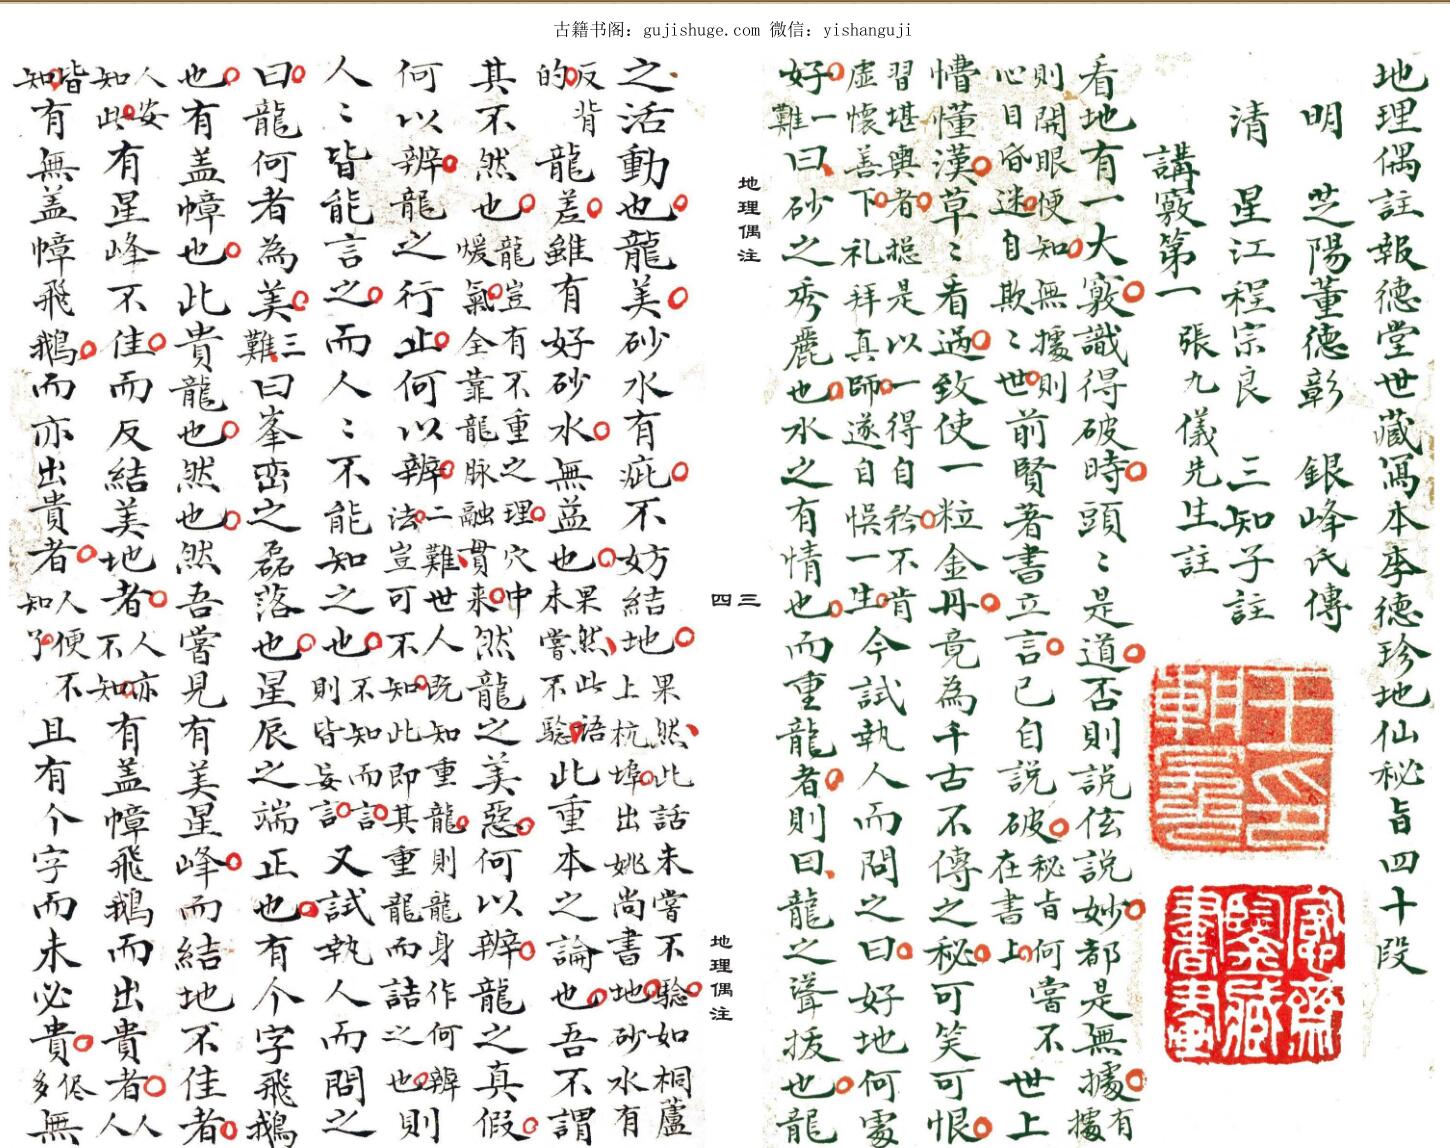 古籍书阁：gujishuge.com 微信：yishanguji
地理偶註報德堂世藏寫本李德珍地仙秘旨四十段
明 芝陽董德彰 銀峰氏傳
清 星江程宗良 三知子註
講竅第一 張九儀先生註
看地有一大竅識得破時頭〻是道否則説伭説妙都是無據有據
則開眼便知無據則心目昏迷自欺〻世前賢著書立言已自説破秘旨何嘗不在書上世上
懵懂漢草〻看過致使一粒金丹竟為千古不傳之秘可笑可恨
習堪輿者揔是以一得自矜不肯虛懷善下礼拜真師遂自悞一生今試執人而問之曰好地何處
好一難曰砂之秀麗也水之有情也而重龍者則曰龍之聳拔也龍
地理偶注
三
四
地理偶注
之活動也龍美砂水有疵不妨結地果然此話未嘗不驗如桐蘆上杭埠出姚尚書地砂水有
反背的龍差雖有好砂水無益也果然此語未嘗不驗此重本之論也吾不謂
其不然也龍豈有不重之理穴中煖氣全靠龍脉融貫来然龍之美惡何以辨龍之真假
何以辨龍之行止何以辨二難世人既知重龍則龍身作何辨法豈可不知此即其重龍而詰之也則
人〻皆能言之而人〻不能知之也不知而言則皆妄言又試執人而問之
曰龍何者為美三難曰峯巒之磊落也星辰之端正也有个字飛鵝
也有盖幛也此貴龍也然也然吾嘗見有美星峰而結地不佳者
人妄知此有星峰不佳而反結美地者人亦不知有盖幛飛鵝而出貴者人人
皆知有無盖幛飛鵝而亦出貴者人便不知了且有个字而未必貴侭多無